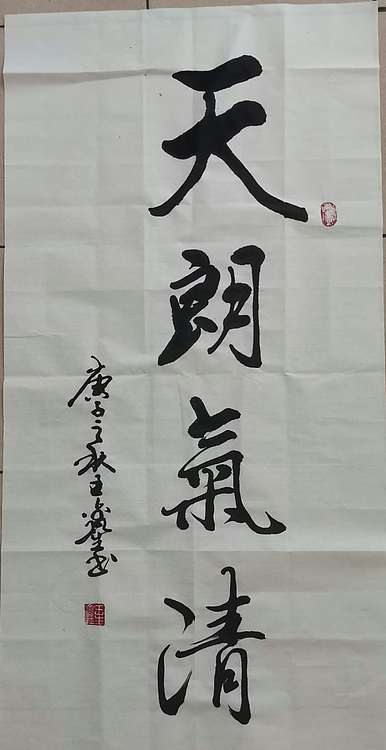 天朗氣清
庚子之秋王